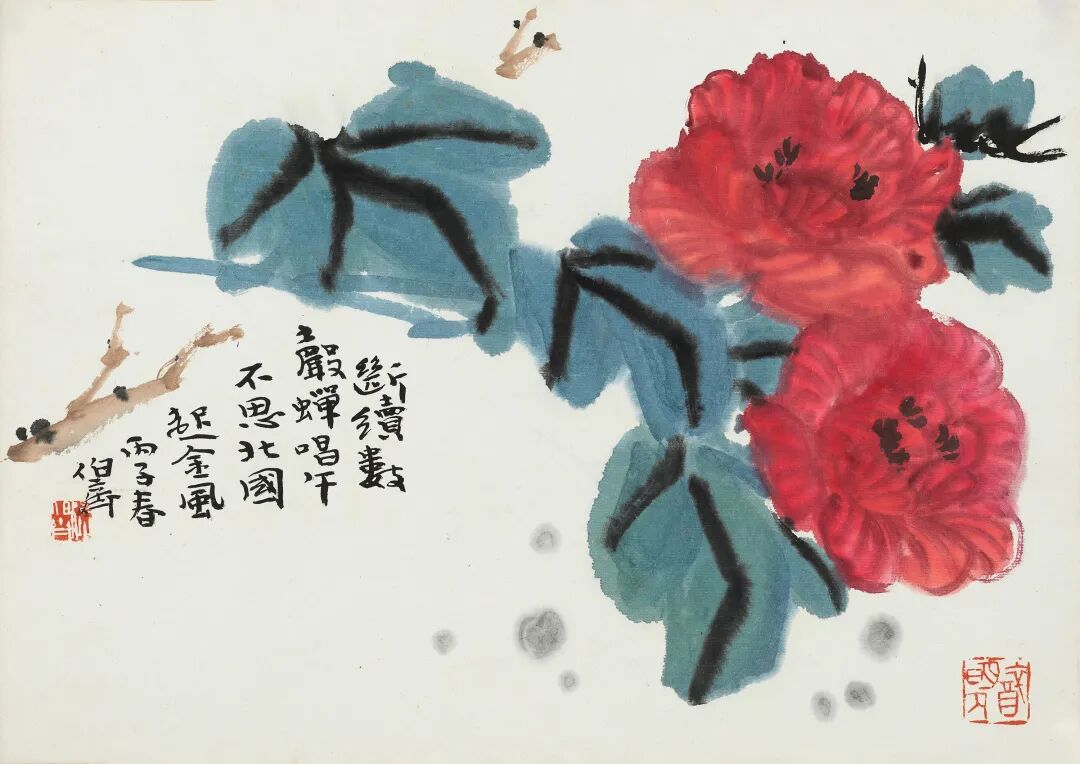 斷續數
聲蟬唱午
不思北國
起金風
丙子春
伯